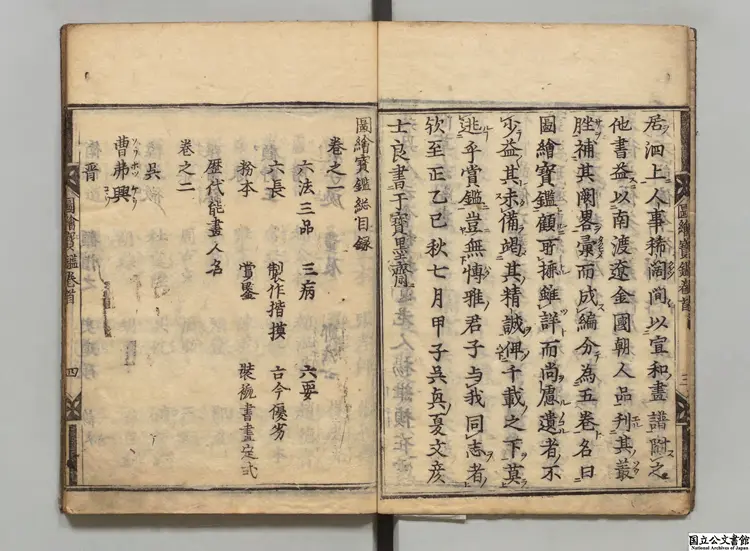 居泗上人事稀闊間以宣和畫譜附之
他書益以南渡遼金國朝人品刋其叢
脞補其闕畧彙而成編分為五卷名曰
圖繪寳鑑顧雖詳而尚慮遺者不
少益其未備竭其精誠俾千載之下莫
逃乎賞鑑豈無博雅君子与我同志者
欤至正乙巳秋七月甲子吳興夏文彦
士良書于寶墨齋
圖繪寳鑑卷首 三
圖繪寳鑑総目録
卷之一
六法三品 三病 六要
六長 製作揩摸 古今優劣
粉本 賞鑒 裝褫書畫定式
歴代能畫人名
卷之二
吳
曹弗興
晋
圖繪寳鑑卷首 四
国立公文書館
National Archives of Japan